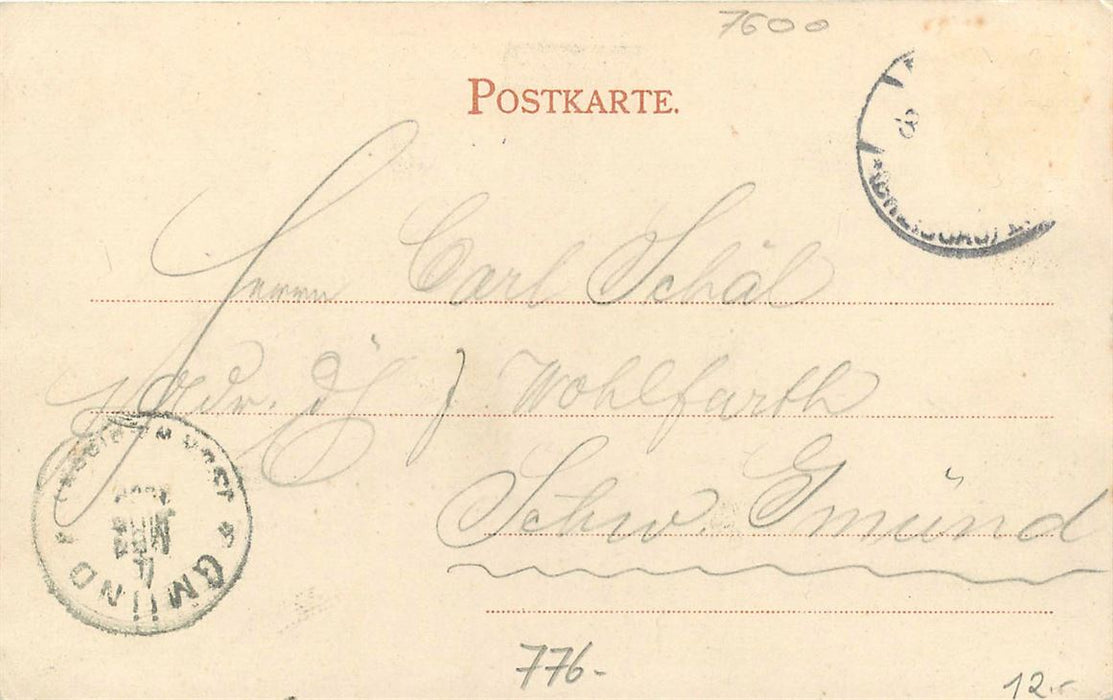 7600
POSTKARTE.
Herrn Carl Schäl
Adr. J. Wohlfarth
Schw. Gmünd
GMÜND
776-
12.-